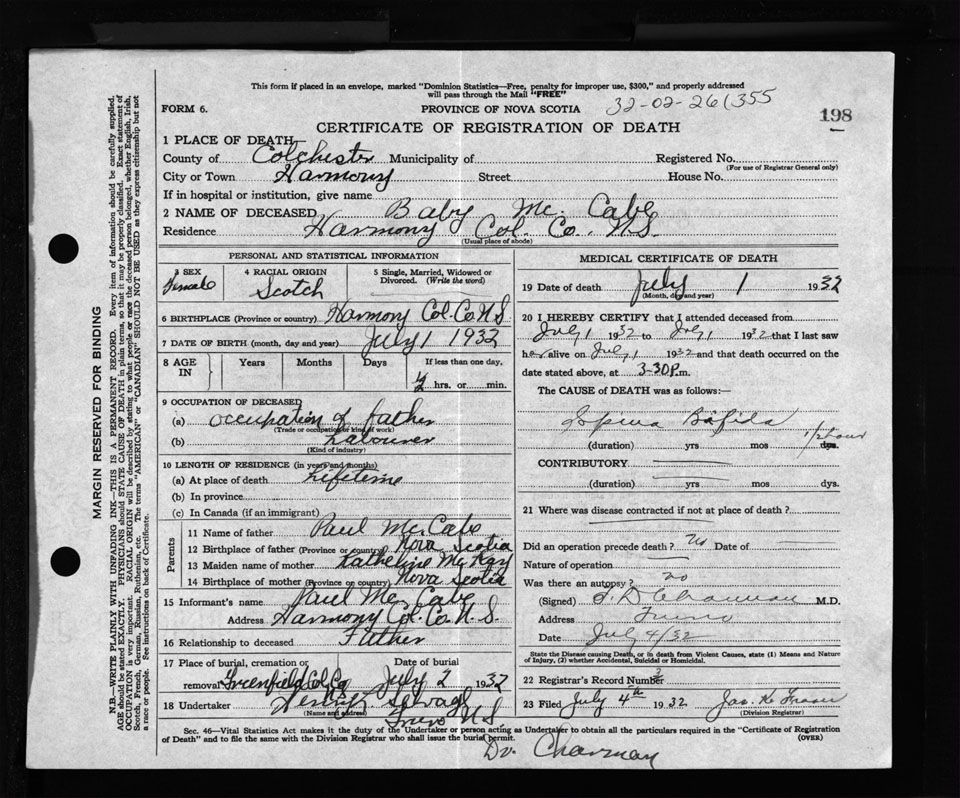 This form if placed in an envelope, marked "Dominion Statistics—Free, penalty for improper use, $300," and properly addressed
will pass through the Mail "FREE"
FORM 6.
PROVINCE OF NOVA SCOTIA
32-02-261355
198
CERTIFICATE OF REGISTRATION OF DEATH
1 PLACE OF DEATH
County of Colchester Municipality of Registered No.
(For use of Registrar General only)
City or Town Harmony Street House No.
If in hospital or institution, give name
2 NAME OF DECEASED Baby Mc. Cabe
Residence Harmony Col. Co. N.S.
(Usual place of abode)
PERSONAL AND STATISTICAL INFORMATION
3 SEX
Female
4 RACIAL ORIGIN
Scotch
5 Single, Married, Widowed or
Divorced. (Write the word)
6 BIRTHPLACE (Province or country) Harmony Col. Co. N.S
7 DATE OF BIRTH (month, day and year) July 1 1932
8 AGE
IN
Years
Months
Days
If less than one day,
½ hrs. or min.
9 OCCUPATION OF DECEASED
(a) Occupation of father
(Trade or occupation or kind of work)
(b) Labourer
(Kind of industry)
10 LENGTH OF RESIDENCE (in years and months)
(a) At place of death Lifetime
(b) In province
(c) In Canada (if an immigrant)
Parents
11 Name of father Paul Mc. Cabe
12 Birthplace of father (Province or country) Nova Scotia
13 Maiden name of mother Katheline Mc Kay
14 Birthplace of mother (Province or country) Nova Scotia
15 Informant's name Paul Mc Cabe
Address Harmony Col. Co. N.S.
16 Relationship to deceased Father
17 Place of burial, cremation or
removal Greenfield Col. Co
N.S
Date of burial
July 2 1932
18 Undertaker Henry Selvage
(Name and address)
Truro N.S.
MEDICAL CERTIFICATE OF DEATH
19 Date of death July 1 1932
(Month, day and year)
20 I HEREBY CERTIFY that I attended deceased from
July 1 1932 to July 1 1932 that I last saw
her alive on July 1 1932 and that death occurred on the
date stated above, at 3-30 P.m.
The CAUSE of DEATH was as follows:—
Bifida
(duration) yrs mos dys.
1/2 hour
CONTRIBUTORY
(duration) yrs mos. dys.
21 Where was disease contracted if not at place of death?
Did an operation precede death? No Date of
Nature of operation
Was there an autopsy? no
(Signed) M.D.
Address Truro
Date July 4/32
State the Disease causing Death, or in death from Violent Causes, state (1) Means and Nature
of Injury, (2) whether Accidental, Suicidal or Homicidal.
22 Registrar's Record Number
23 Filed July 4th 1932 Jas. K. Fraser
(Division Registrar)
Sec. 46—Vital Statistics Act makes it the duty of the Undertaker or person acting as Undertaker to obtain all the particulars required in the "Certificate of Registration
of Death" and to file the same with the Division Registrar who shall issue the burial permit.
(OVER)
Dr. Charman
MARGIN RESERVED FOR BINDING
N.B.—WRITE PLAINLY WITH UNFADING INK—THIS IS A PERMANENT RECORD. Every item of information should be carefully supplied.
AGE should be stated EXACTLY. PHYSICIANS should STATE CAUSE OF DEATH in plain terms, so that it may be properly classified. Exact statement of
OCCUPATION is very important. RACIAL ORIGIN will be described by stating to what people or race the deceased person belonged, whether English, Irish,
Scotch, French, German, Russian, Ruthenian, etc. The terms "AMERICAN" or "CANADIAN" SHOULD NOT BE USED as they express citizenship but not
a race or people. See instructions on back of Certificate.